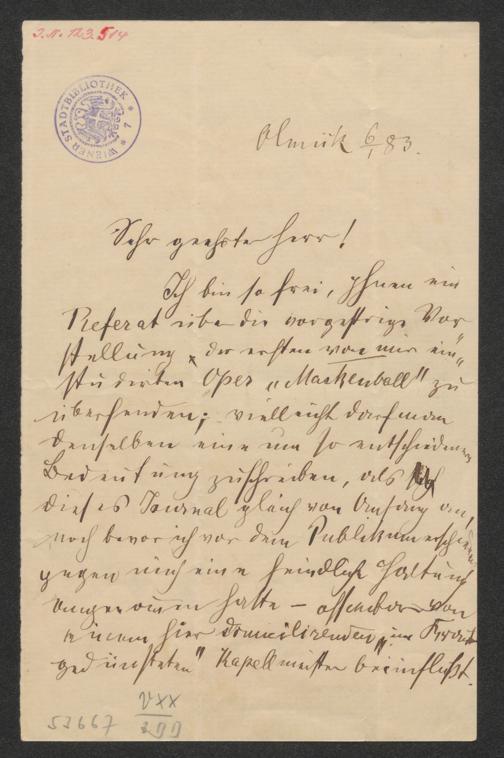 J.N. 123.514
WIENER STADTBIBLIOTHEK * 7 *
Olmütz 6/1 83.
Sehr geehrter Herr!
Ich bin so frei, Ihnen ein
Referat über die vorgestrige Vor
stellung der ersten von mir ein„
studirten Oper „Maskenball" zu
übersenden; vielleicht darf man
demselben eine um so entschiedenere
Bedeutung zuschreiben, als
dieses Journal gleich von Anfang an,
noch bevor ich vor dem Publikum erschienen
gegen mich eine feindliche Haltung
angenommen hatte – offenbar von
einem hier domicilirenden „im
gedünsteten" Kapellmeister beeinflußt.
53667